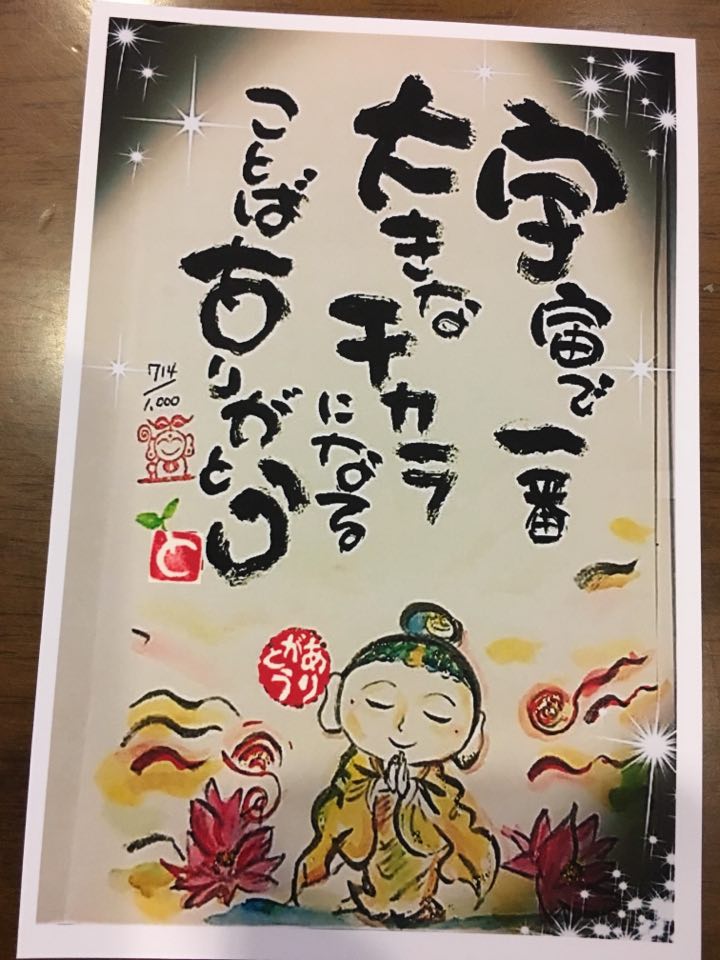 宇宙で一番
大きな
チカラ
になる
ことば
ありがとう
714/1,000
と
ありがとう